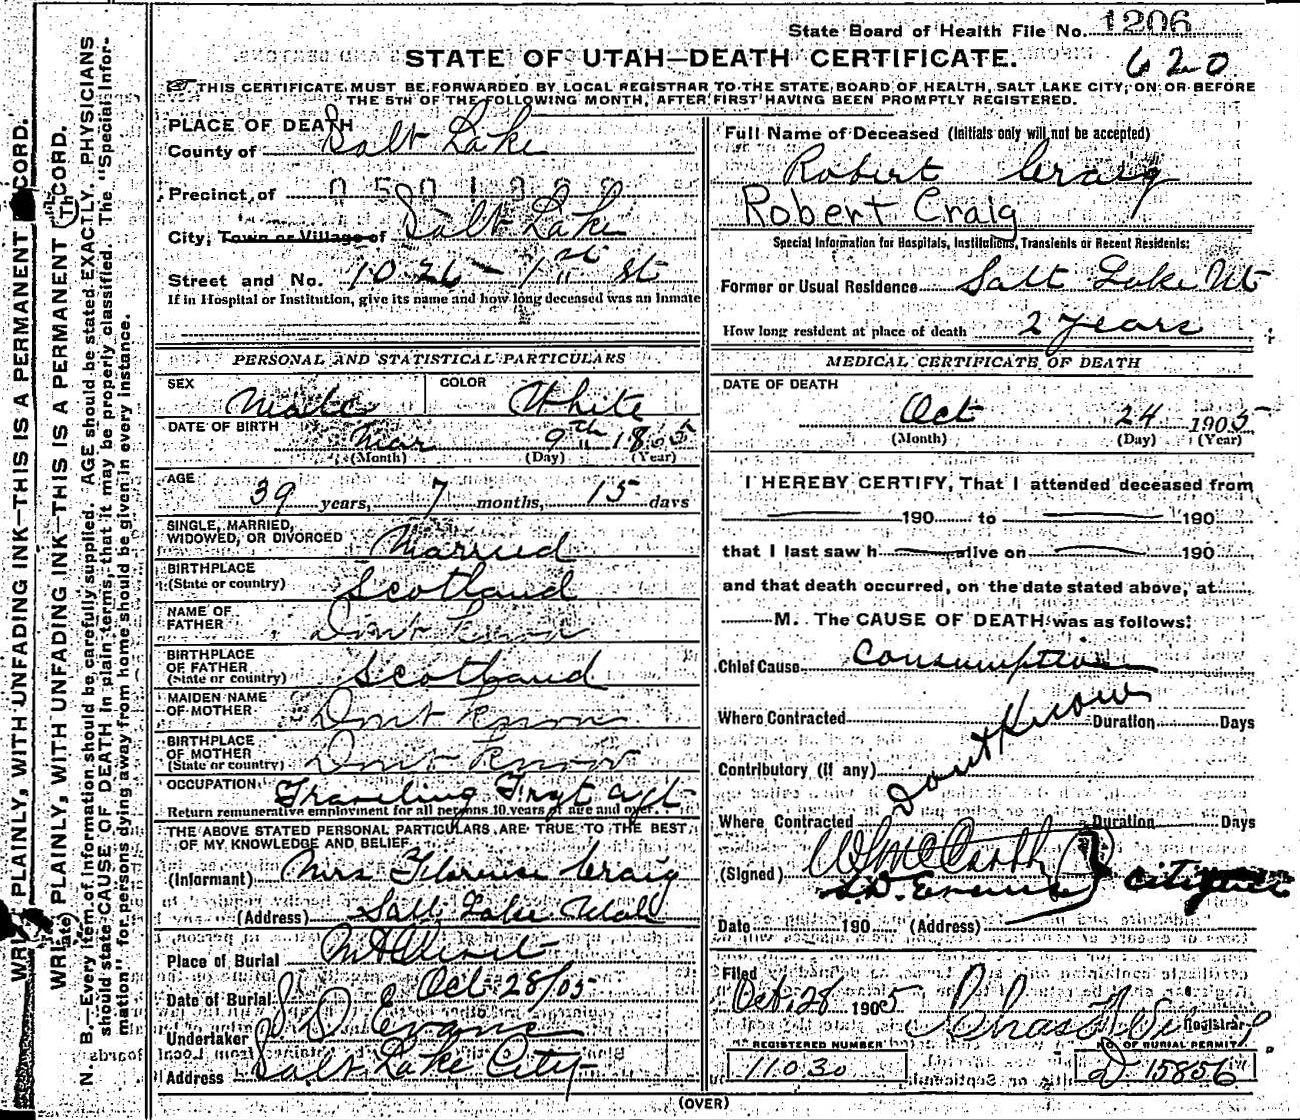 State Board of Health File No. 1206
620
STATE OF UTAH—DEATH CERTIFICATE.
THIS CERTIFICATE MUST BE FORWARDED BY LOCAL REGISTRAR TO THE STATE BOARD OF HEALTH, SALT LAKE CITY, ON OR BEFORE
THE 5TH OF THE FOLLOWING MONTH, AFTER FIRST HAVING BEEN PROMPTLY REGISTERED.
PLACE OF DEATH
County of Salt Lake
Precinct of
City, Town or Village of Salt Lake
Street and No. 1026 - 1st St
If in Hospital or Institution, give its name and how long deceased was an Inmate
PERSONAL AND STATISTICAL PARTICULARS
SEX Male COLOR White
DATE OF BIRTH Mar 9th
(Month) (Day) (Year)
AGE 39 years, 7 months, 15 days
SINGLE, MARRIED,
WIDOWED, OR DIVORCED Married
BIRTHPLACE
(State or country) Scotland
NAME OF
FATHER Dont Know
BIRTHPLACE
OF FATHER
(State or country) Scotland
MAIDEN NAME
OF MOTHER Dont Know
BIRTHPLACE
OF MOTHER
(State or country) Dont Know
OCCUPATION Traveling Frgt agt
Return remunerative employment for all persons 10 years of age and over.
THE ABOVE STATED PERSONAL PARTICULARS ARE TRUE TO THE BEST
OF MY KNOWLEDGE AND BELIEF
(Informant) Mrs Florence Craig
(Address) Salt Lake Utah
Place of Burial Mt Olivet
Date of Burial Oct 28/05
Undertaker S. D. Evans
Address Salt Lake City
Full Name of Deceased (Initials only will not be accepted)
Robert Craig
Robert Craig
Special Information for Hospitals, Institutions, Transients or Recent Residents:
Former or Usual Residence Salt Lake Ut
How long resident at place of death 2 years
MEDICAL CERTIFICATE OF DEATH
DATE OF DEATH
Oct 24 1905
(Month) (Day) (Year)
I HEREBY CERTIFY, That I attended deceased from
190 to 190
that I last saw h alive on 190
and that death occurred, on the date stated above, at
M. The CAUSE OF DEATH was as follows:
Chief Cause Consumption
Where Contracted Duration Days
Dont Know
Contributory (if any)
Where Contracted Duration Days
(Signed)
S.D. Evans
Date 190 (Address)
Filed
Oct. 28 1905
Registrar
REGISTERED NUMBER
11030
NO. OF BURIAL PERMIT
D 15856
(OVER)
WRITE PLAINLY, WITH UNFADING INK—THIS IS A PERMANENT RECORD.
WRITE PLAINLY, WITH UNFADING INK—THIS IS A PERMANENT RECORD.
N. B.—Every item of information should be carefully supplied. AGE should be stated EXACTLY. PHYSICIANS
should state CAUSE OF DEATH in plain terms, that it may be properly classified. The "Special Infor-
mation" for persons dying away from home should be given in every instance.